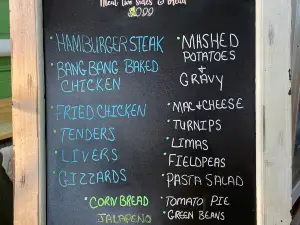 Meat two sides & bread
HAMBURGER STEAK
BANG BANG BAKED
CHICKEN
FRIED CHICKEN
TENDERS
LIVERS
GIZZARDS
CORN BREAD
JALAPENO
MASHED
POTATOES
&
GRAVY
MAC & CHEESE
TURNIPS
LIMAS
FIELDPEAS
PASTA SALAD
TOMATO PIE
GREEN BEANS